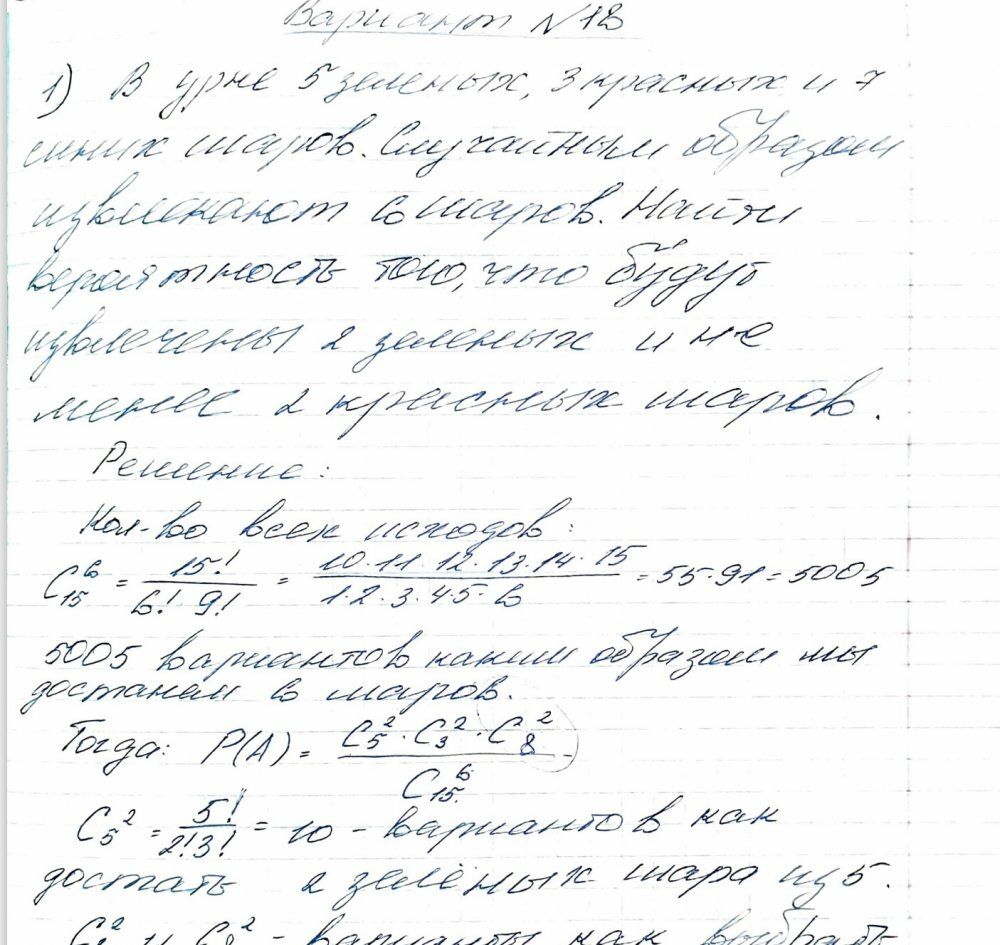 Вариант №18
1) В урне 5 зеленых, 3 красных и 7
синих шаров. Случайным образом
извлекают 6 шаров. Найти
вероятность того, что будут
извлечены 2 зеленых и не
менее 2 красных шаров.
Решение:
Кол-во всех исходов:
C₁₅⁶ = 15! / (6! · 9!) = (10·11·12·13·14·15) / (1·2·3·4·5·6) = 55·91 = 5005
5005 вариантов каким образом мы
достанем 6 шаров.
Тогда: P(A) = (C₅² · C₃² · C₈²) / C₁₅⁶
C₅² = 5! / (2!3!) = 10 - вариантов как
достать 2 зелёных шара из 5.
и - варианты как выбрать